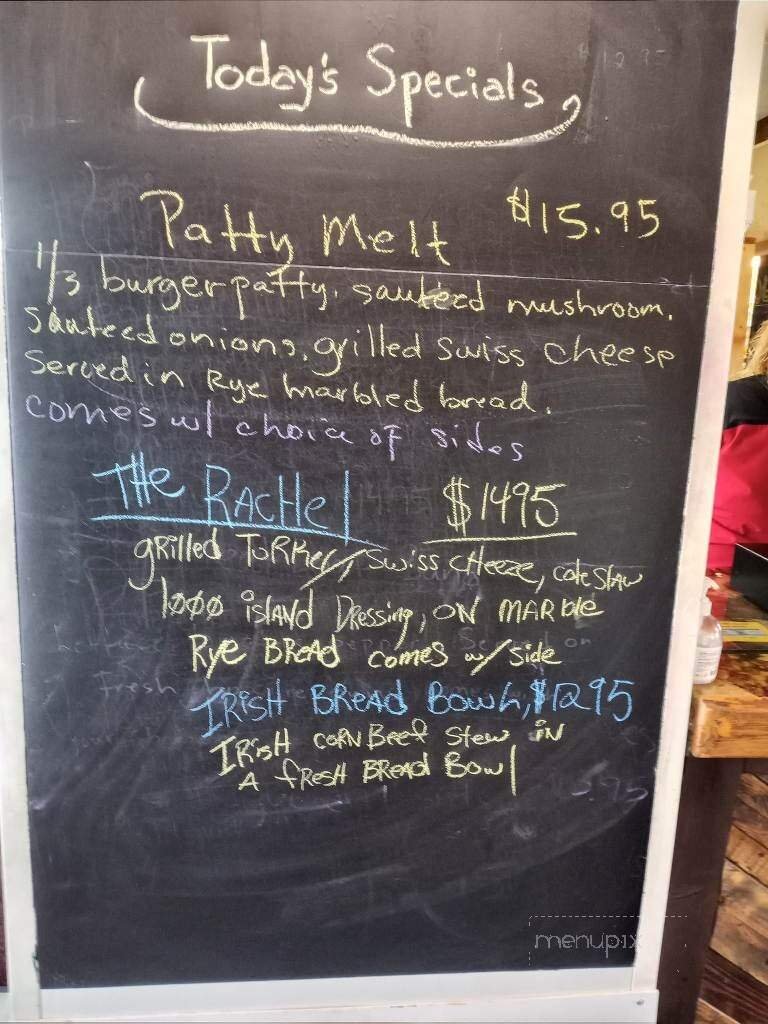 Today's Specials
Patty Melt $15.95
1/3 burger patty, sauteed mushroom,
Sauteed onions, grilled Swiss cheese
served in Rye marbled bread.
comes w/ choice of sides
THe RACHel $1495
gRilled TuRKey, Swiss CHeeze, cole slaw
1000 islAND DRessing, ON MARble
Rye BReAD comes w/ side
IRisH BReAD Bowl, $1295
IRisH CORN Beef stew iN
A fResH BReAD Bowl
menupix